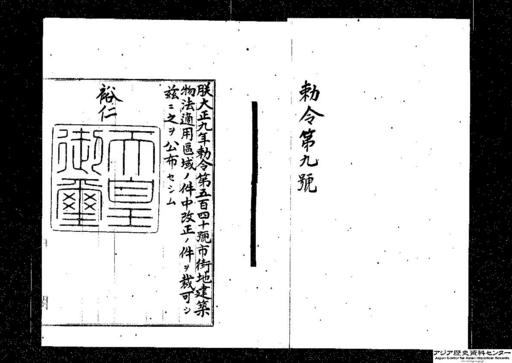 勅令第九號
朕大正九年勅令第五百四十號市街地建築
物法適用區域ノ件中改正ノ件ヲ裁可シ
茲ニ之ヲ公布セシム
裕仁
天皇
御璽
アジア歴史資料センター
Japan Center for Asian Historical Records